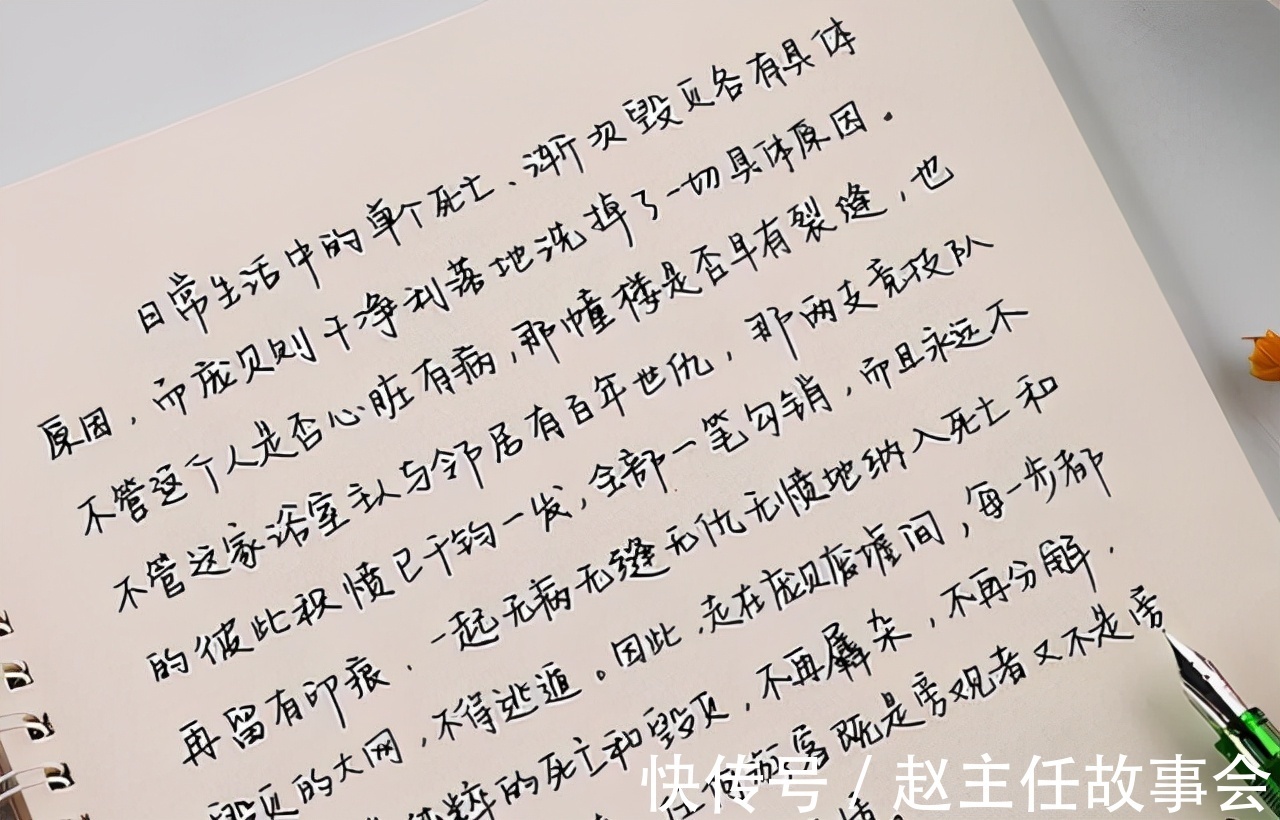 日常生活中的单个死亡、渐次毁灭各有具体
原因，而庞贝则干净利落地洗掉了一切具体原因.
不管这个人是否心脏有病，那幢楼是否早有裂缝，也
不管这家浴室主人与邻居有百年世仇，那两支竞技队
的彼此积愤已千钧一发，全部一笔勾销，而且永远不
再留有印痕.一起无病无缝无仇无愤地纳入死亡和
毁灭的大网，不得逃遁。因此，走在庞贝废墟间，每一步都
粹的死亡和毁灭，不再羼杂，不再分解.
任何 既是旁观者又不是旁
快传号 / 赵主任故事会